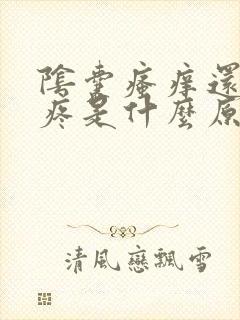 陰囊瘙痒還
疼是什麼原
清風戀飄雪